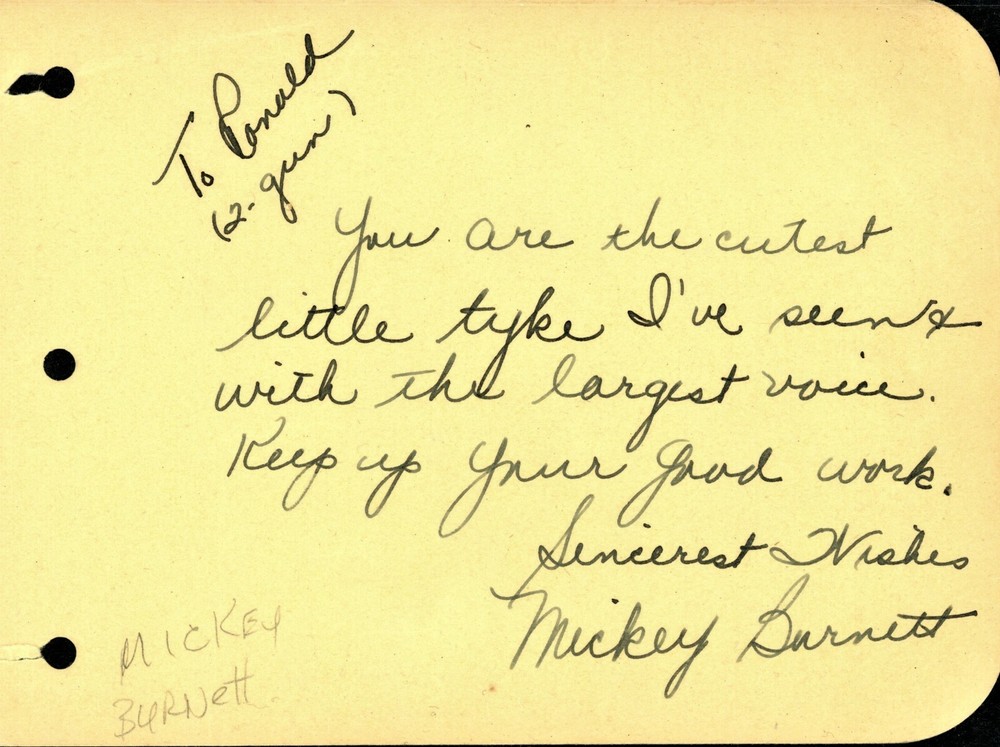 To Ronald
(2-gun)
You are the cutest
little tyke I've seen &
with the largest voice.
Keep up your good work.
Sincerest Wishes
Mickey Burnett
MICKEY
BURNett